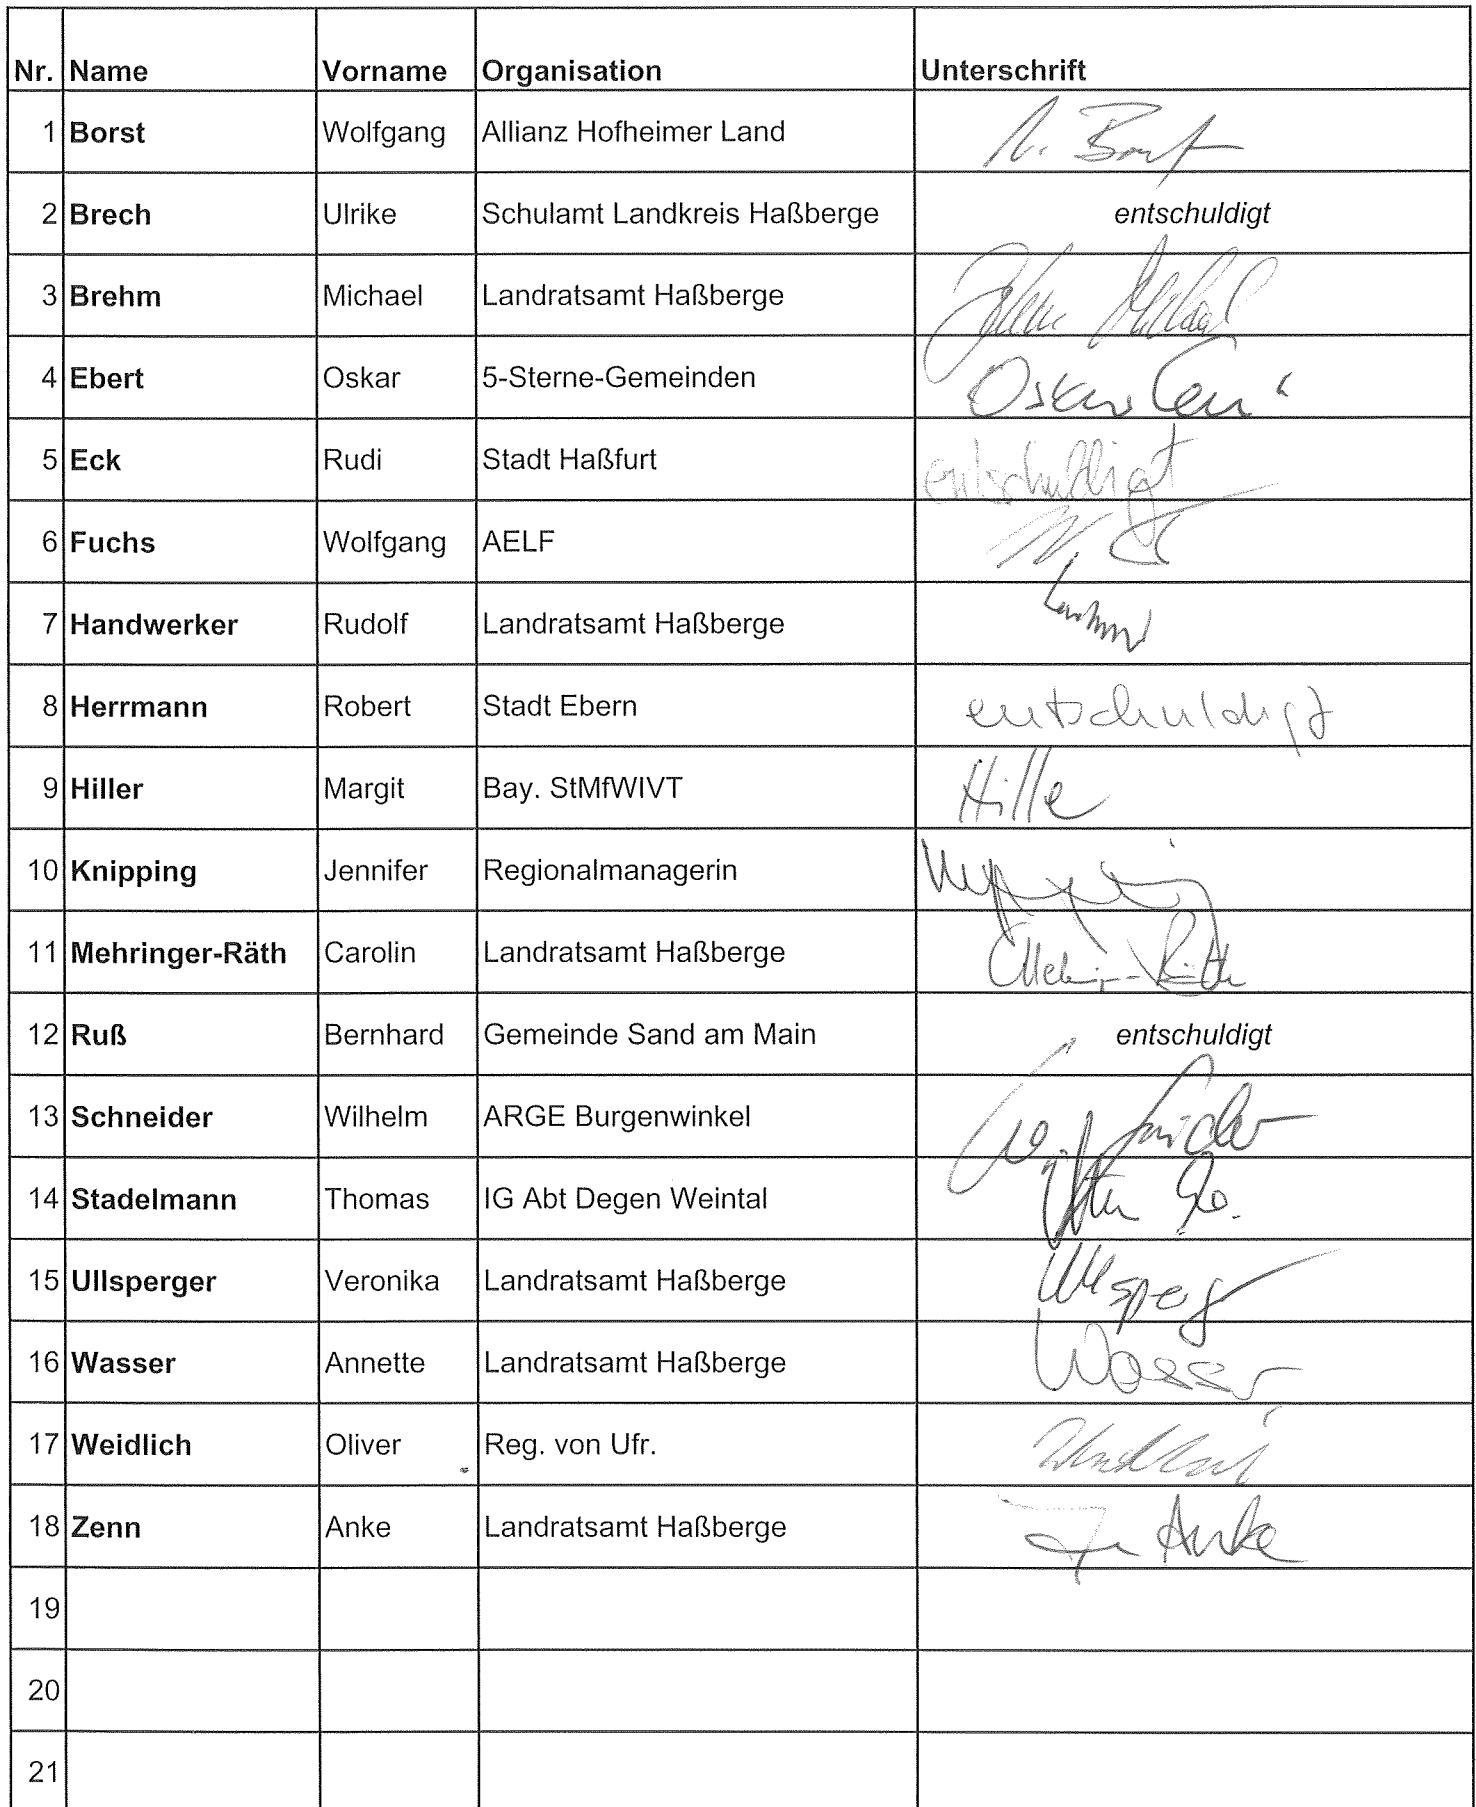 Nr. Name Vorname Organisation Unterschrift
1 Borst Wolfgang Allianz Hofheimer Land
2 Brech Ulrike Schulamt Landkreis Haßberge entschuldigt
3 Brehm Michael Landratsamt Haßberge
4 Ebert Oskar 5-Sterne-Gemeinden Oskar
5 Eck Rudi Stadt Haßfurt entschuldigt
6 Fuchs Wolfgang AELF
7 Handwerker Rudolf Landratsamt Haßberge
8 Herrmann Robert Stadt Ebern entschuldigt
9 Hiller Margit Bay. StMfWIVT Hille
10 Knipping Jennifer Regionalmanagerin
11 Mehringer-Räth Carolin Landratsamt Haßberge
12 Ruß Bernhard Gemeinde Sand am Main entschuldigt
13 Schneider Wilhelm ARGE Burgenwinkel
14 Stadelmann Thomas IG Abt Degen Weintal
15 Ullsperger Veronika Landratsamt Haßberge
16 Wasser Annette Landratsamt Haßberge Wasser
17 Weidlich Oliver Reg. von Ufr.
18 Zenn Anke Landratsamt Haßberge Anke
19
20
21